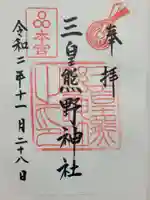 奉拝
三皇熊野神社
本宮
令和二年十一月二十八日